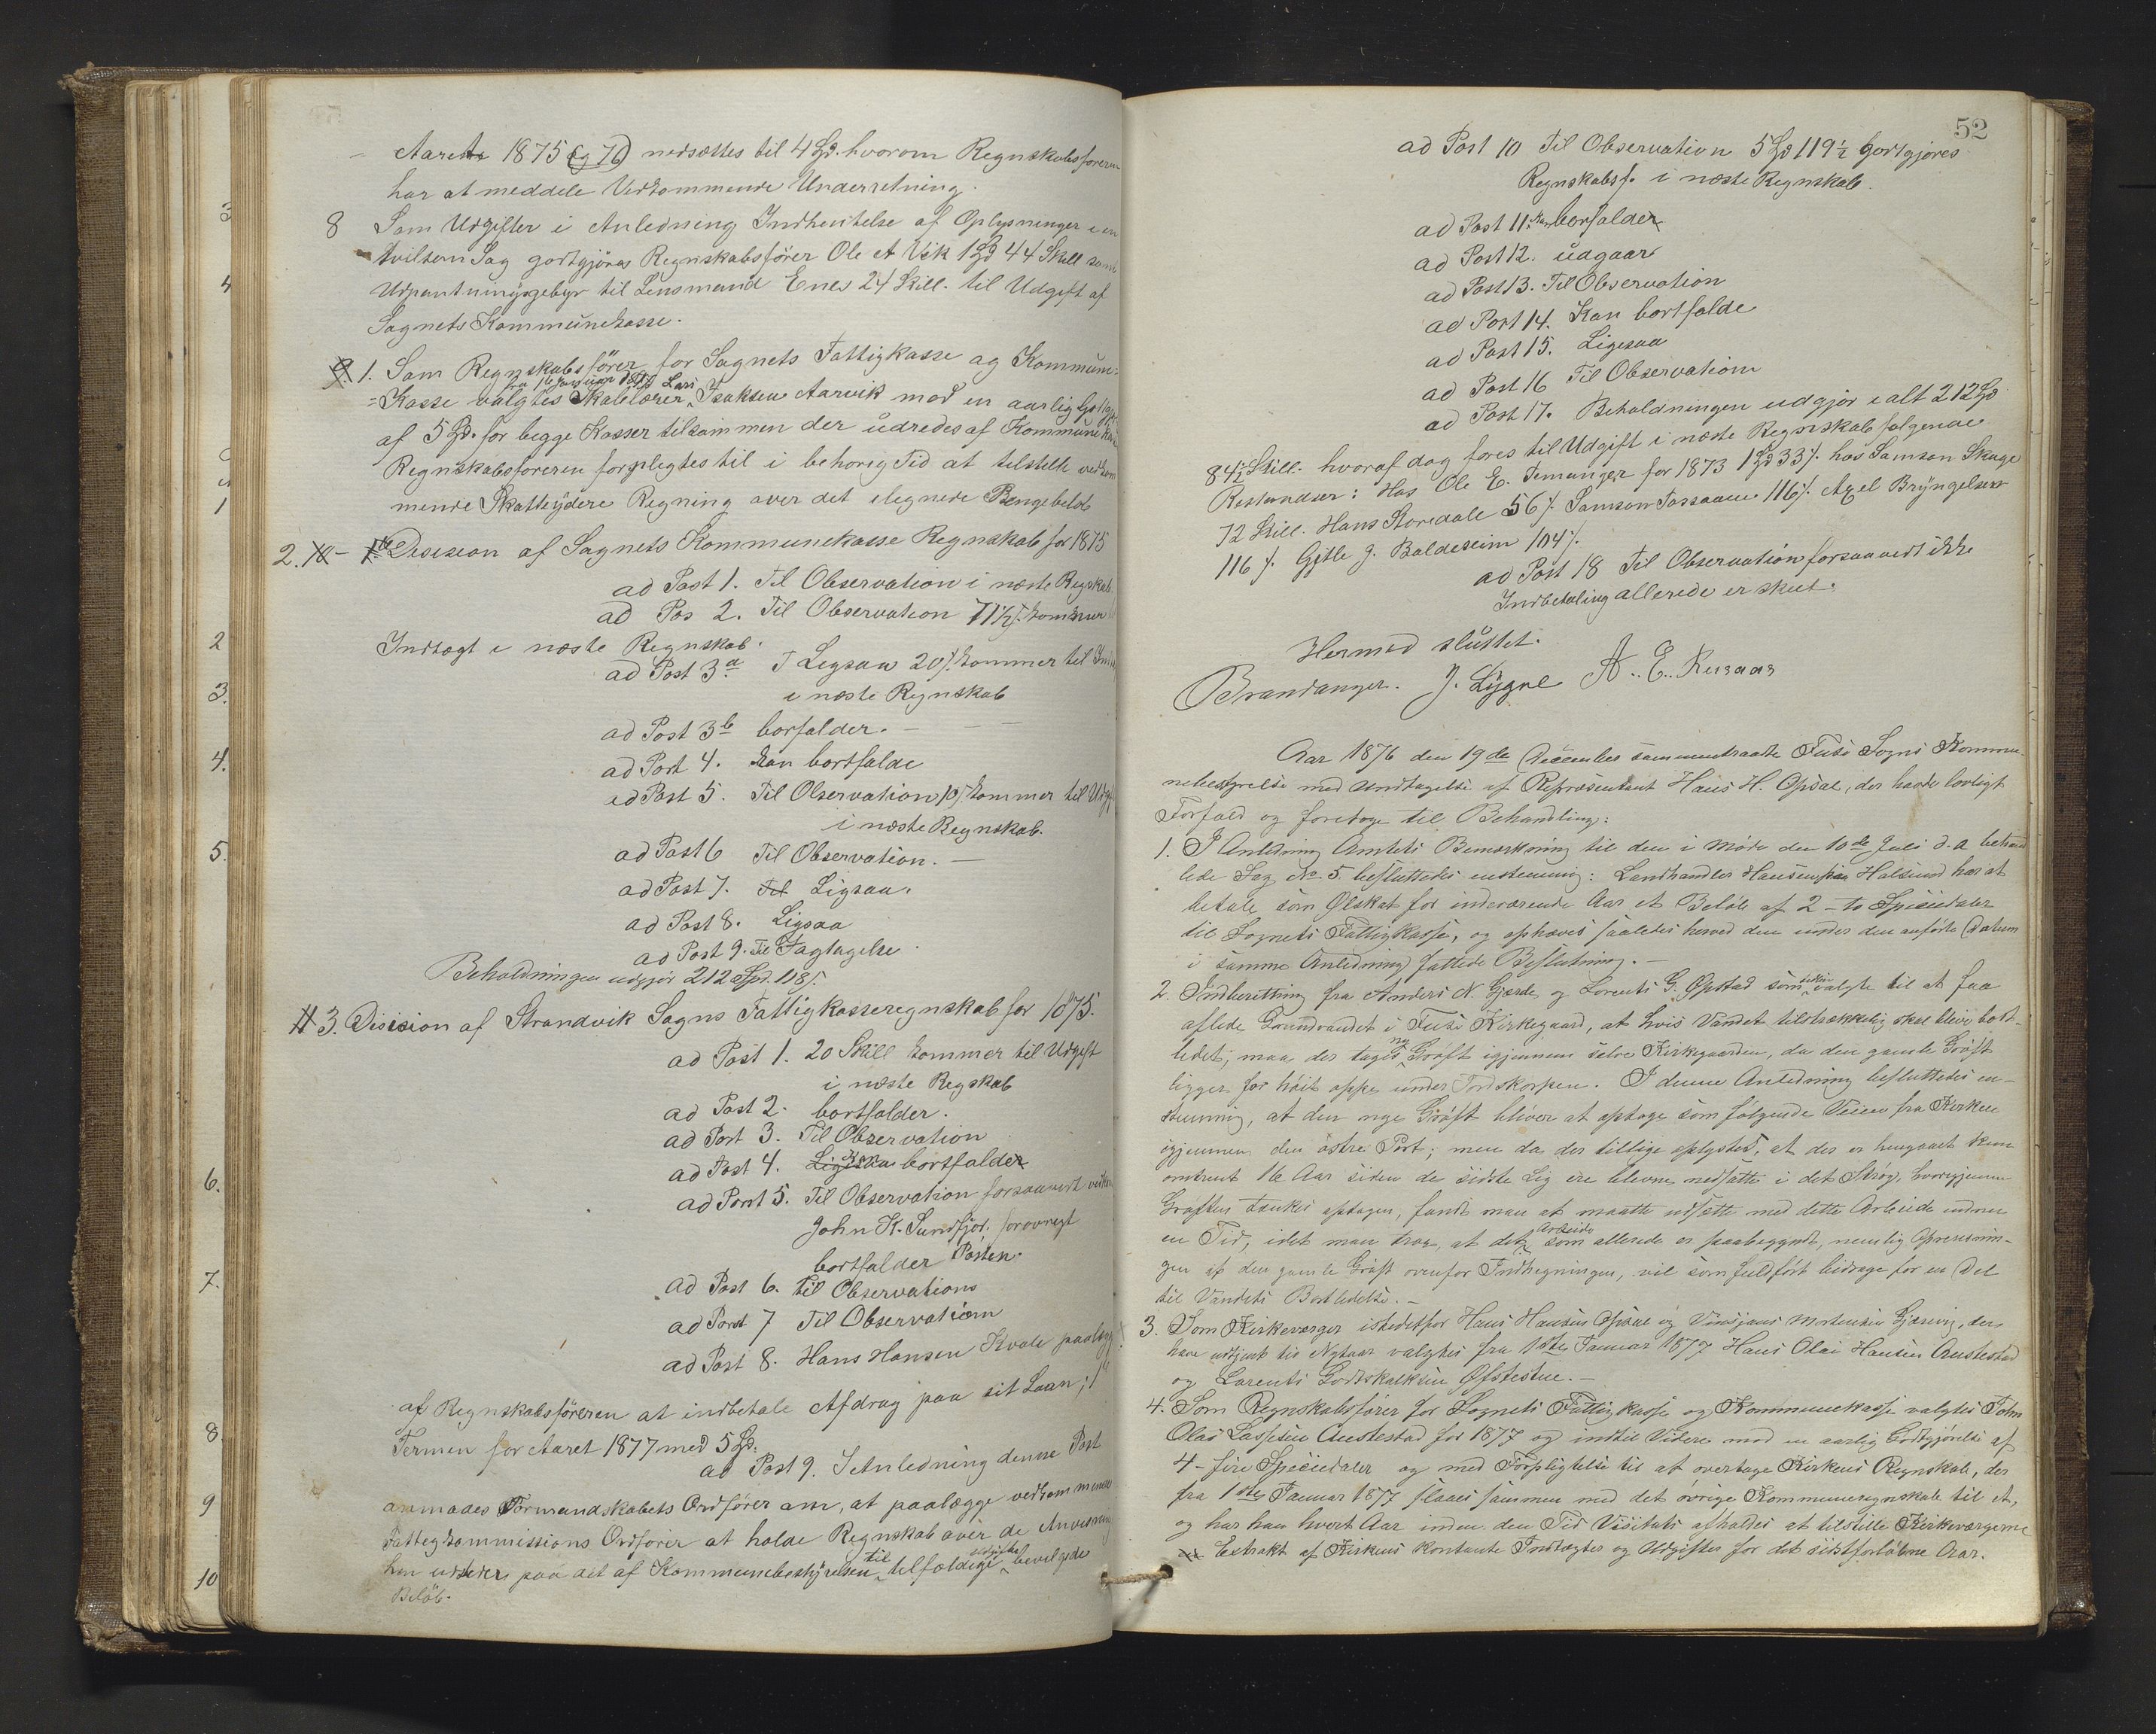 Aarets 1875 (og 76) nedsættes til 4 Spd. hvorom Regnskabsføreren
har at meddele Vedkommende Underretning.
8 Som Udgifter i Anledning Indhentelse af Oplysninger i en
tvilsom Sag godtgjöres Regnskabsförer Ole A Vik 1 Spd 44 Skill samt
Udpantningsgebyr til Lensmand Enes 24 Skill. til Udgift af
Sognets Kommunekasse.
1. Som Regnskabsförer for Sognets Fattigkasse og Kommun=
fra 1 Januar 1877 Lars
=Kasse valgtes Skolelærer Isaksen Aarvik mod en aarlig Godtgj.
af 5 Spd. for begge Kasser tilsammen der udredes af Kommunekas
Regnskabsføreren forpligtes til i behørig Tid at tilstille vedkom
mende Skatteydere Regning over det ilegnede Pengebeløb
2. Desision af Sognets Kommunekasse Regnskab for 1875
ad Post 1. Til Observation i næste Regskab.
ad Pos 2. Til Observation 71½ ſ. kommer til
Indtægt i næste Regnskab.
ad Post 3a Ligsaa 20 ſ. kommer til Ind
i næste Regnskab
ad Post 3b borfalder. —
ad Port 4. kan bortfalde
ad Post 5. Til Observation 10 ſ. kommer til Udg
i næste Regnskab.
ad Post 6 Til Observation. —
ad Post 7. Til Ligsaa.
ad Post 8. Ligsaa
ad Post 9. Til Iagtagelse.
Beholdningen udgjør 212 Spd. 118 ſ.
3. Disision af Strandvik Sogns Fattigkasseregnskab for 1875.
ad Post 1. 20 Skill kommer til Udgift
i næste Regskab
ad Post 2. bortfalder.
ad Port 3. Til Observation
ad Post 4. Ligesaa kan bortfalder
ad Port 5. Til Observation forsaavidt vedkom
John K. Sundfjor. forøvrigt
bortfalder Posten.
ad Post 6. til Observations
ad Post 7 Til Observation
ad Post 8. Hans Hansen Kvale paalægg
af Regnskabsföreren at indbetale Afdrag paa sit Laan; 1ste
Termin for Aaret 1877 med 5 Spd.
ad Post 9. I Anledning denne Post
anmodes Formandskabets Ordförer om, at paalægge vedkommende
Fattigkommissions Ordfører at holde Regnskab over de Anvisning
han udsteder paa det af Kommunebestÿrelsen til tilfældige udgifter bevilgede
Beløb.
52
ad Post 10 Til Observation 5 Spd 119½ godtgjøres
Regnskabsf. i næste Regnskab.
ad Post 11. Kan borfalder
ad Post 12. udgaar
ad Post 13. Til Observation
ad Port 14. Kan bortfalde
ad Post 15. Ligesaa
ad Post 16 Til Observation
ad Post 17. Beholdningen udgjør i alt 212 Spd
84½ Skill. hvoraf dog føres til Udgift i næste Regnskab følgende
Restandser: Hos Ole E. Temanger for 1873 1 Spd 33 ſ. hos Samson Skage
72 Skill. Hans Koredale 56 ſ. Samson 116 ſ. Axel Brÿngelsen
116 ſ. Gjtle J. Boldeseim 104 ſ.
ad Post 18 Til Observation forsaavidt ikke
Indbetaling allerede er skeet.
Hermed sluttet.
Brandanger. J. Lygre A. E. Revaas
Aar 1876 den 19de December sammentraadte Fuse Sogns Kommu
nebestyrelse med Undtagelse af Repræsentant Hans H. Opsal, der havde lovligt
Forfald og foretoges til Behandling:
1. I Anledning Amtets Bemærkning til den i Møde den 10de Juli d. A behand
lede Sag No. 5 besluttedes enstemmig: Landhandler Hansen paa Halsund har at
betale som Ølskat for indeværende Aar et Beløb af 2 - to Speciedaler
til Sognets Fattigkasse, og ophæves saaledes herved den under den anførte Datum
i samme Anledning fattede Beslutning. —
2. Indberetning fra Anders N. Gjerde og Lorents G. Øpstad som valgte til at faa
aflede Grundvandet i Fuse Kirkegaard, at hvis Vandet tilstrækkelig skal blive bort-
ledet, maa der tages ny Grøft igjennem selve Kirkegaarden, da den gamle Grøft
ligger for høit oppe under Jordskorpen. I denne Anledning besluttedes en-
stemmig, at den nye Grøft bliver at optage som følgende Veien fra Kirken
igjennem den østre Port; men da der tillige oplystes, at der er hengaaet kun
omtrent 16 Aar siden de sidste Lig ere blevne nedsatte i det Strøg, hvorigjennem
Grøften tænkes optagen, fandt man at maatte udsætte med dette Arbeide endnu
en Tid, idet man tror, at det Arbeide som allerede er paabegyndt, nemlig Oprensnin-
gen af den gamle Grøft ovenfor Indhegningen, vil som fuldført bidrage for en Del
til Vandets Bortledelse. —
3. Som Kirkeværger istedetfor Hans Hansen Opsal og Mortensen Gjerevig, der
have udtjent til Nytaar valgtes fra 1ste Januar 1877 Hans Olai Hansen Austestad
og Lorents Godskalksen Øfstestue. —
4. Som Regnskabsfører for Sognets Fattigkasse og Kommunekasse valgtes John
Olai Lassesen Austestad for 1877 og indtil Videre mod en aarlig Godtgjørelse af
4 - fire Speciedaler og med Forpligtelse til at overtage Kirkens Regnskab, der
fra 1ste Januar 1877 slaaes sammen med det øvrige Kommuneregnskab til et,
og har han hvert Aar inden den Tid Visitats afholdes at tilstille Kirkeværgerne
Extrakt af Kirkens kontante Indtægter og Udgifter for det sidstforløbne Aar.